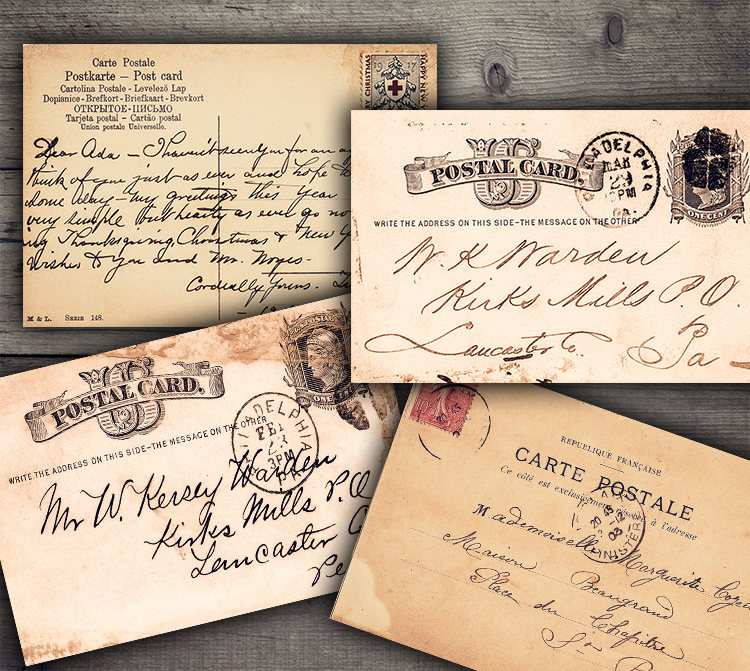 Carte Postale
Postkarte – Post card
Cartolina Postale - Levelező Lap
Dopisnice - Brefkort - Briefkaart - Brevkort
ОТКРЫТОЕ - ПИСЬМО
Tarjeta postal - Cartão postal
Union postale Universelle.
MERRY CHRISTMAS
1917
HAPPY NEW
Dear Ada – I haven't seen you for an ag
think of you just as ever and hope to
some day – my greetings this year
very simple but hearty as ever go no
ing Thanksgiving, Christmas & New Y
wishes to you and Mr. Noyes.
Cordially yours.
M & L. Serie 148.
US
POSTAL CARD.
WRITE THE ADDRESS ON THIS SIDE–THE MESSAGE ON THE OTHER
PHILADELPHIA
MAR
29
PM
PA.
ONE CENT
W. K Warden
Kirks Mills P.O.
Lancaster Co. Pa
US
POSTAL CARD.
WRITE THE ADDRESS ON THIS SIDE–THE MESSAGE ON THE OTHER
ILADELPHIA
FEB
23
3PM
PA
ONE CENT
Mr W. Kersey Warden
Kirks Mills P.O
Lancaster C
Pe
RÉPUBLIQUE FRANÇAISE
CARTE POSTALE
Ce côté est exclusivement réservé à l'adresse
Mademoiselle Marguerite
Maison Beaugrand
Place du Chapitre